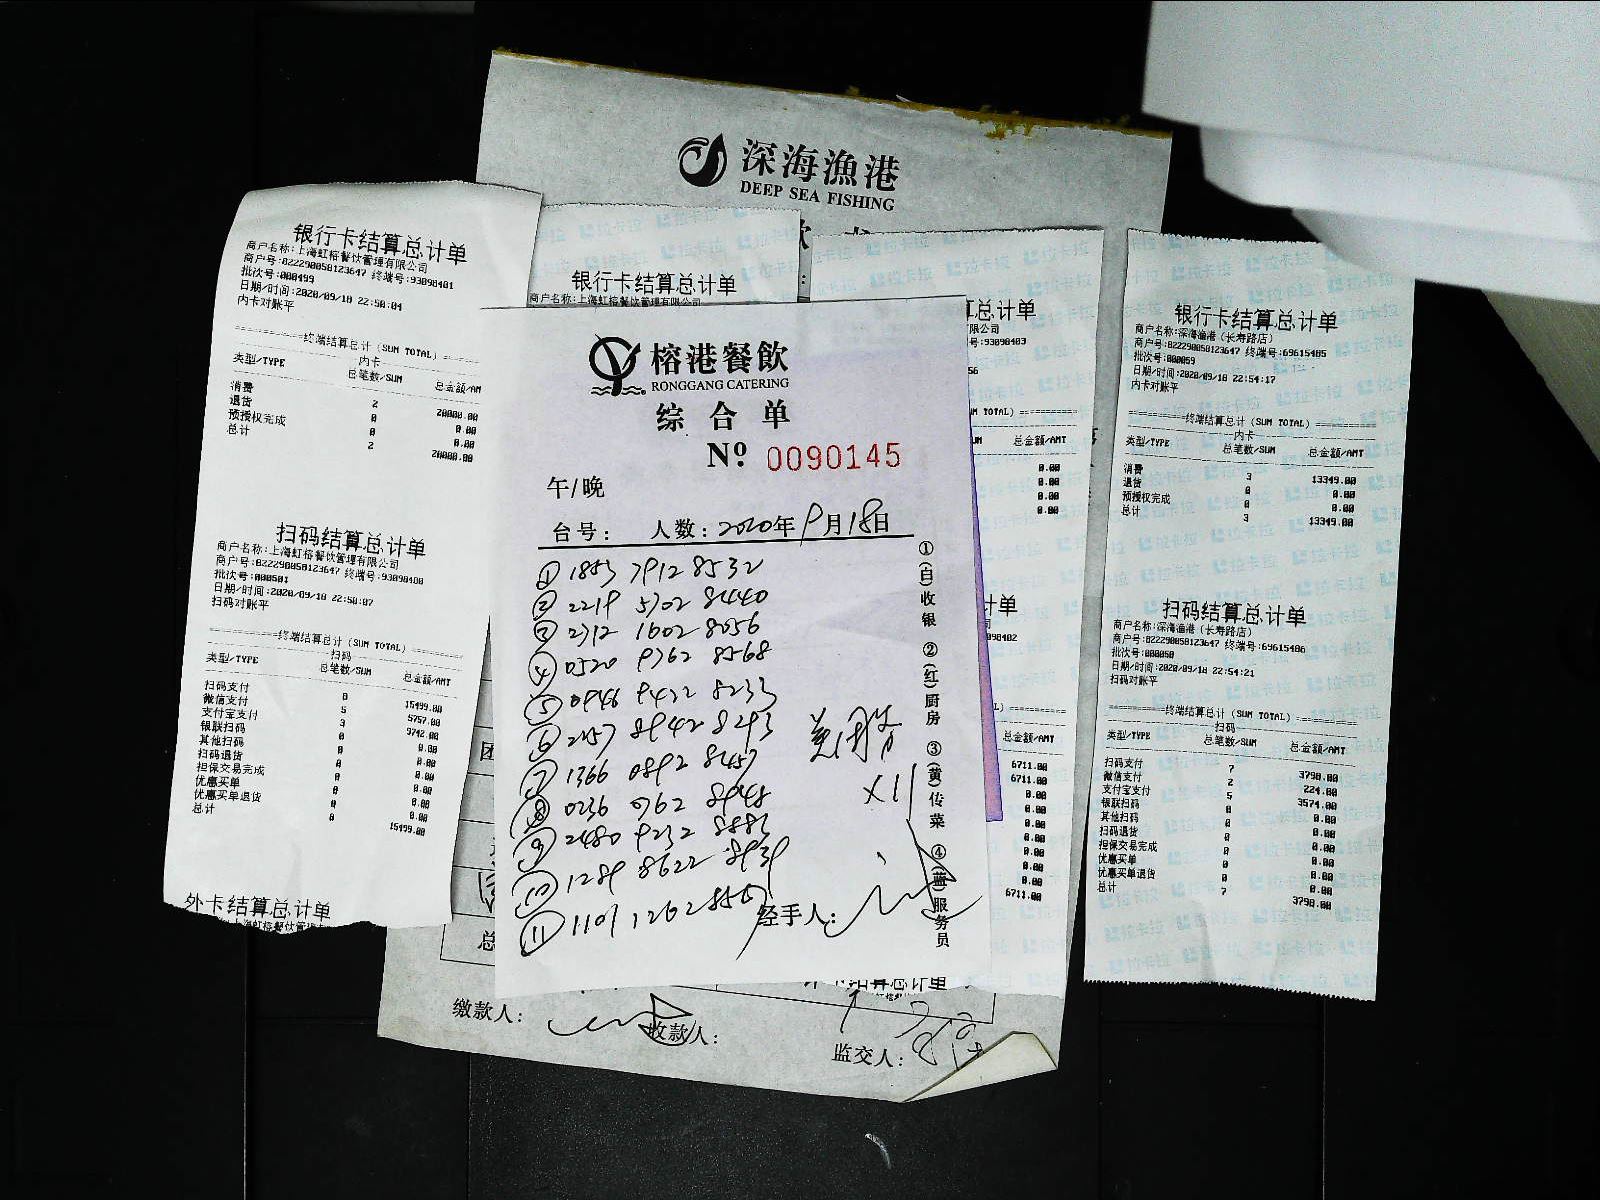 深海漁港
DEEP SEA FISHING
银行卡结算总计单
商户名称:上海虹榕餐饮管理有限公司
商户号:822290058123647 终端号:93098401
批次号:000499
日期/时间:2020/09/18 22:50:04
内卡对账平
终端结算总计 (SUM TOTAL)
内卡
类型/TYPE 总笔数/SUM 总金额/AM
消费 2 20000.00
退货 0 0.00
预授权完成 0 0.00
总计 2 20000.00
扫码结算总计单
商户名称:上海虹榕餐饮管理有限公司
商户号:822290058123647 终端号:93098400
批次号:000501
日期/时间:2020/09/18 22:50:07
扫码对账平
终端结算总计 (SUM TOTAL)
扫码
类型/TYPE 总笔数/SUM 总金额/AMT
扫码支付 8 15499.00
微信支付 5 5757.00
支付宝支付 3 9742.00
银联扫码 0 0.00
其他扫码 0 0.00
扫码退货 0 0.00
担保交易完成 0 0.00
优惠买单 0 0.00
优惠买单退货 0 0.00
总计 8 15499.00
外卡结算总计单
上海虹榕餐饮管
银行卡结算总计单
商户名称:上海虹榕餐饮管理有限公司
榕港餐飲
RONGGANG CATERING
综合单
Nº 0090145
午/晚
台号: 人数: 2020年9月18日
① 1853 7912 8532
② 2219 5702 8440
③ 2712 1602 8056
④ 0520 9762 8568
⑤ 0946 9432 8233
⑥ 2457 8942 8293
⑦ 1366 0892 8457
⑧ 0236 0762 8948
⑨ 2480 9232 8883
⑩ 1289 8622 8939
⑪ 1101 1262 855
美团券
×11
经手人:
①(白)收银 ②(红)厨房 ③(黄)传菜 ④(蓝)服务员
总计单
限公司
:93098403
56
M TOTAL)
UM 总金额/AMT
0.00
0.00
0.00
0.00
计单
司
098402
TAL)
总金额/AMT
6711.00
6711.00
0.00
0.00
0.00
0.00
0.00
0.00
0.00
6711.00
卡结算总计单
银行卡结算总计单
商户名称:深海渔港 (长寿路店)
商户号:822290058123647 终端号:69615485
批次号:000059
日期/时间:2020/09/18 22:54:17
内卡对账平
终端结算总计 (SUM TOTAL)
内卡
类型/TYPE 总笔数/SUM 总金额/AMT
消费 3 13349.00
退货 0 0.00
预授权完成 0 0.00
总计 3 13349.00
扫码结算总计单
商户名称:深海渔港 (长寿路店)
商户号:822290058123647 终端号:69615486
批次号:000050
日期/时间:2020/09/18 22:54:21
扫码对账平
终端结算总计 (SUM TOTAL)
扫码
类型/TYPE 总笔数/SUM 总金额/AMT
扫码支付 7 3798.00
微信支付 2 224.00
支付宝支付 5 3574.00
银联扫码 0 0.00
其他扫码 0 0.00
扫码退货 0 0.00
担保交易完成 0 0.00
优惠买单 0 0.00
优惠买单退货 0 0.00
总计 7 3798.00
团
总
缴款人:
收款人:
监交人: